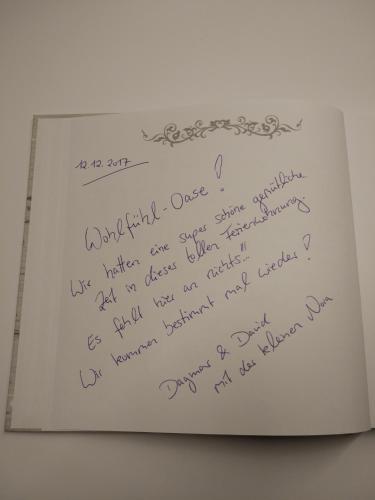 12.12.2017
Wohlfühl-Oase!
Wir hatten eine super schöne gemütliche
Zeit in dieser tollen Ferienwohnung.
Es fehlt hier an nichts!!
Wir kommen bestimmt mal wieder!
Dagmar & David
mit der kleinen Nora